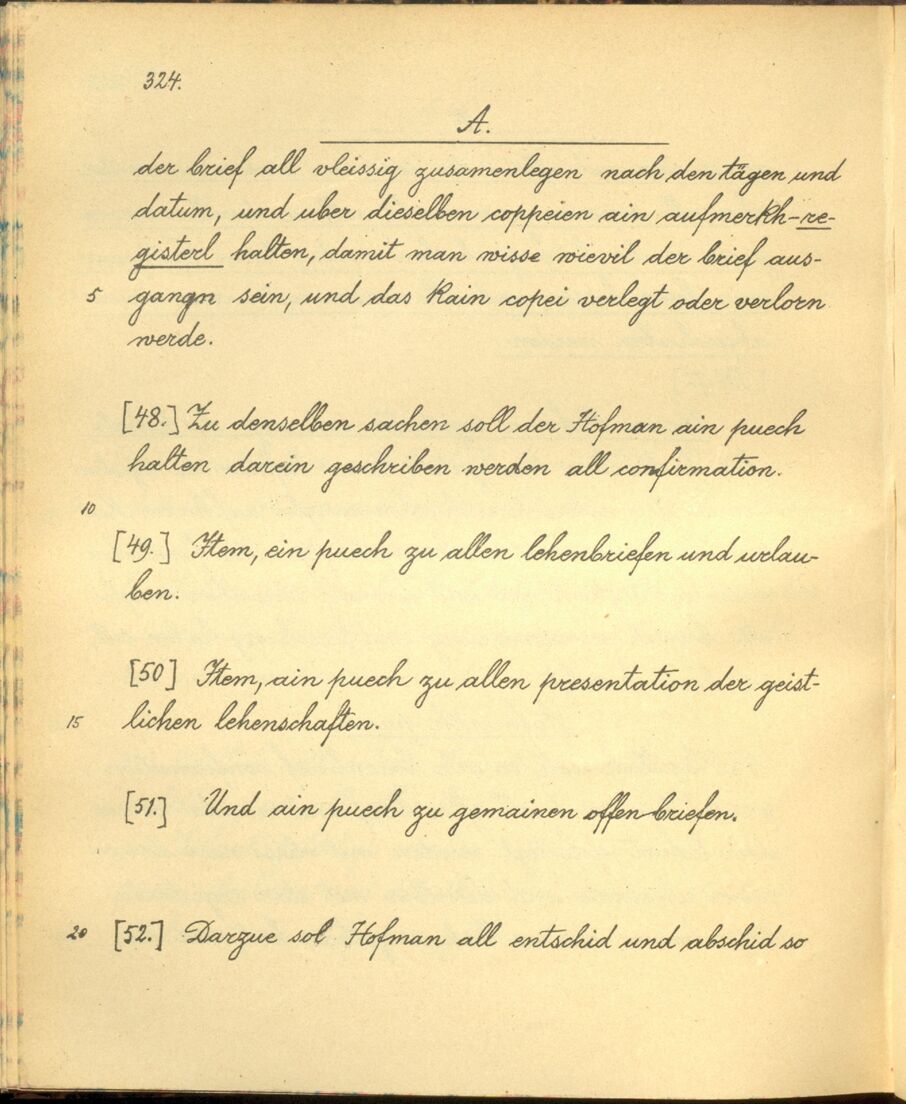 324.
A.
der brief all vleissig zusamenlegen nach den tägen und
datum, und uber dieselben coppeien ain aufmerkh-re-
gisterl halten, damit man wisse wievil der brief aus-
5 gangn sein, und das kain copei verlegt oder verlorn
werde.
[48.] Zu denselben sachen soll der Hofman ain puech
halten darein geschriben werden all confirmation.
10
[49.] Item, ein puech zu allen lehenbriefen und urlau-
ben.
[50] Item, ain puech zu allen presentation der geist-
15 lichen lehenschaften.
[51.] Und ain puech zu gemainen offen briefen.
20 [52.] Darzue sol Hofman all entschid und abschid so